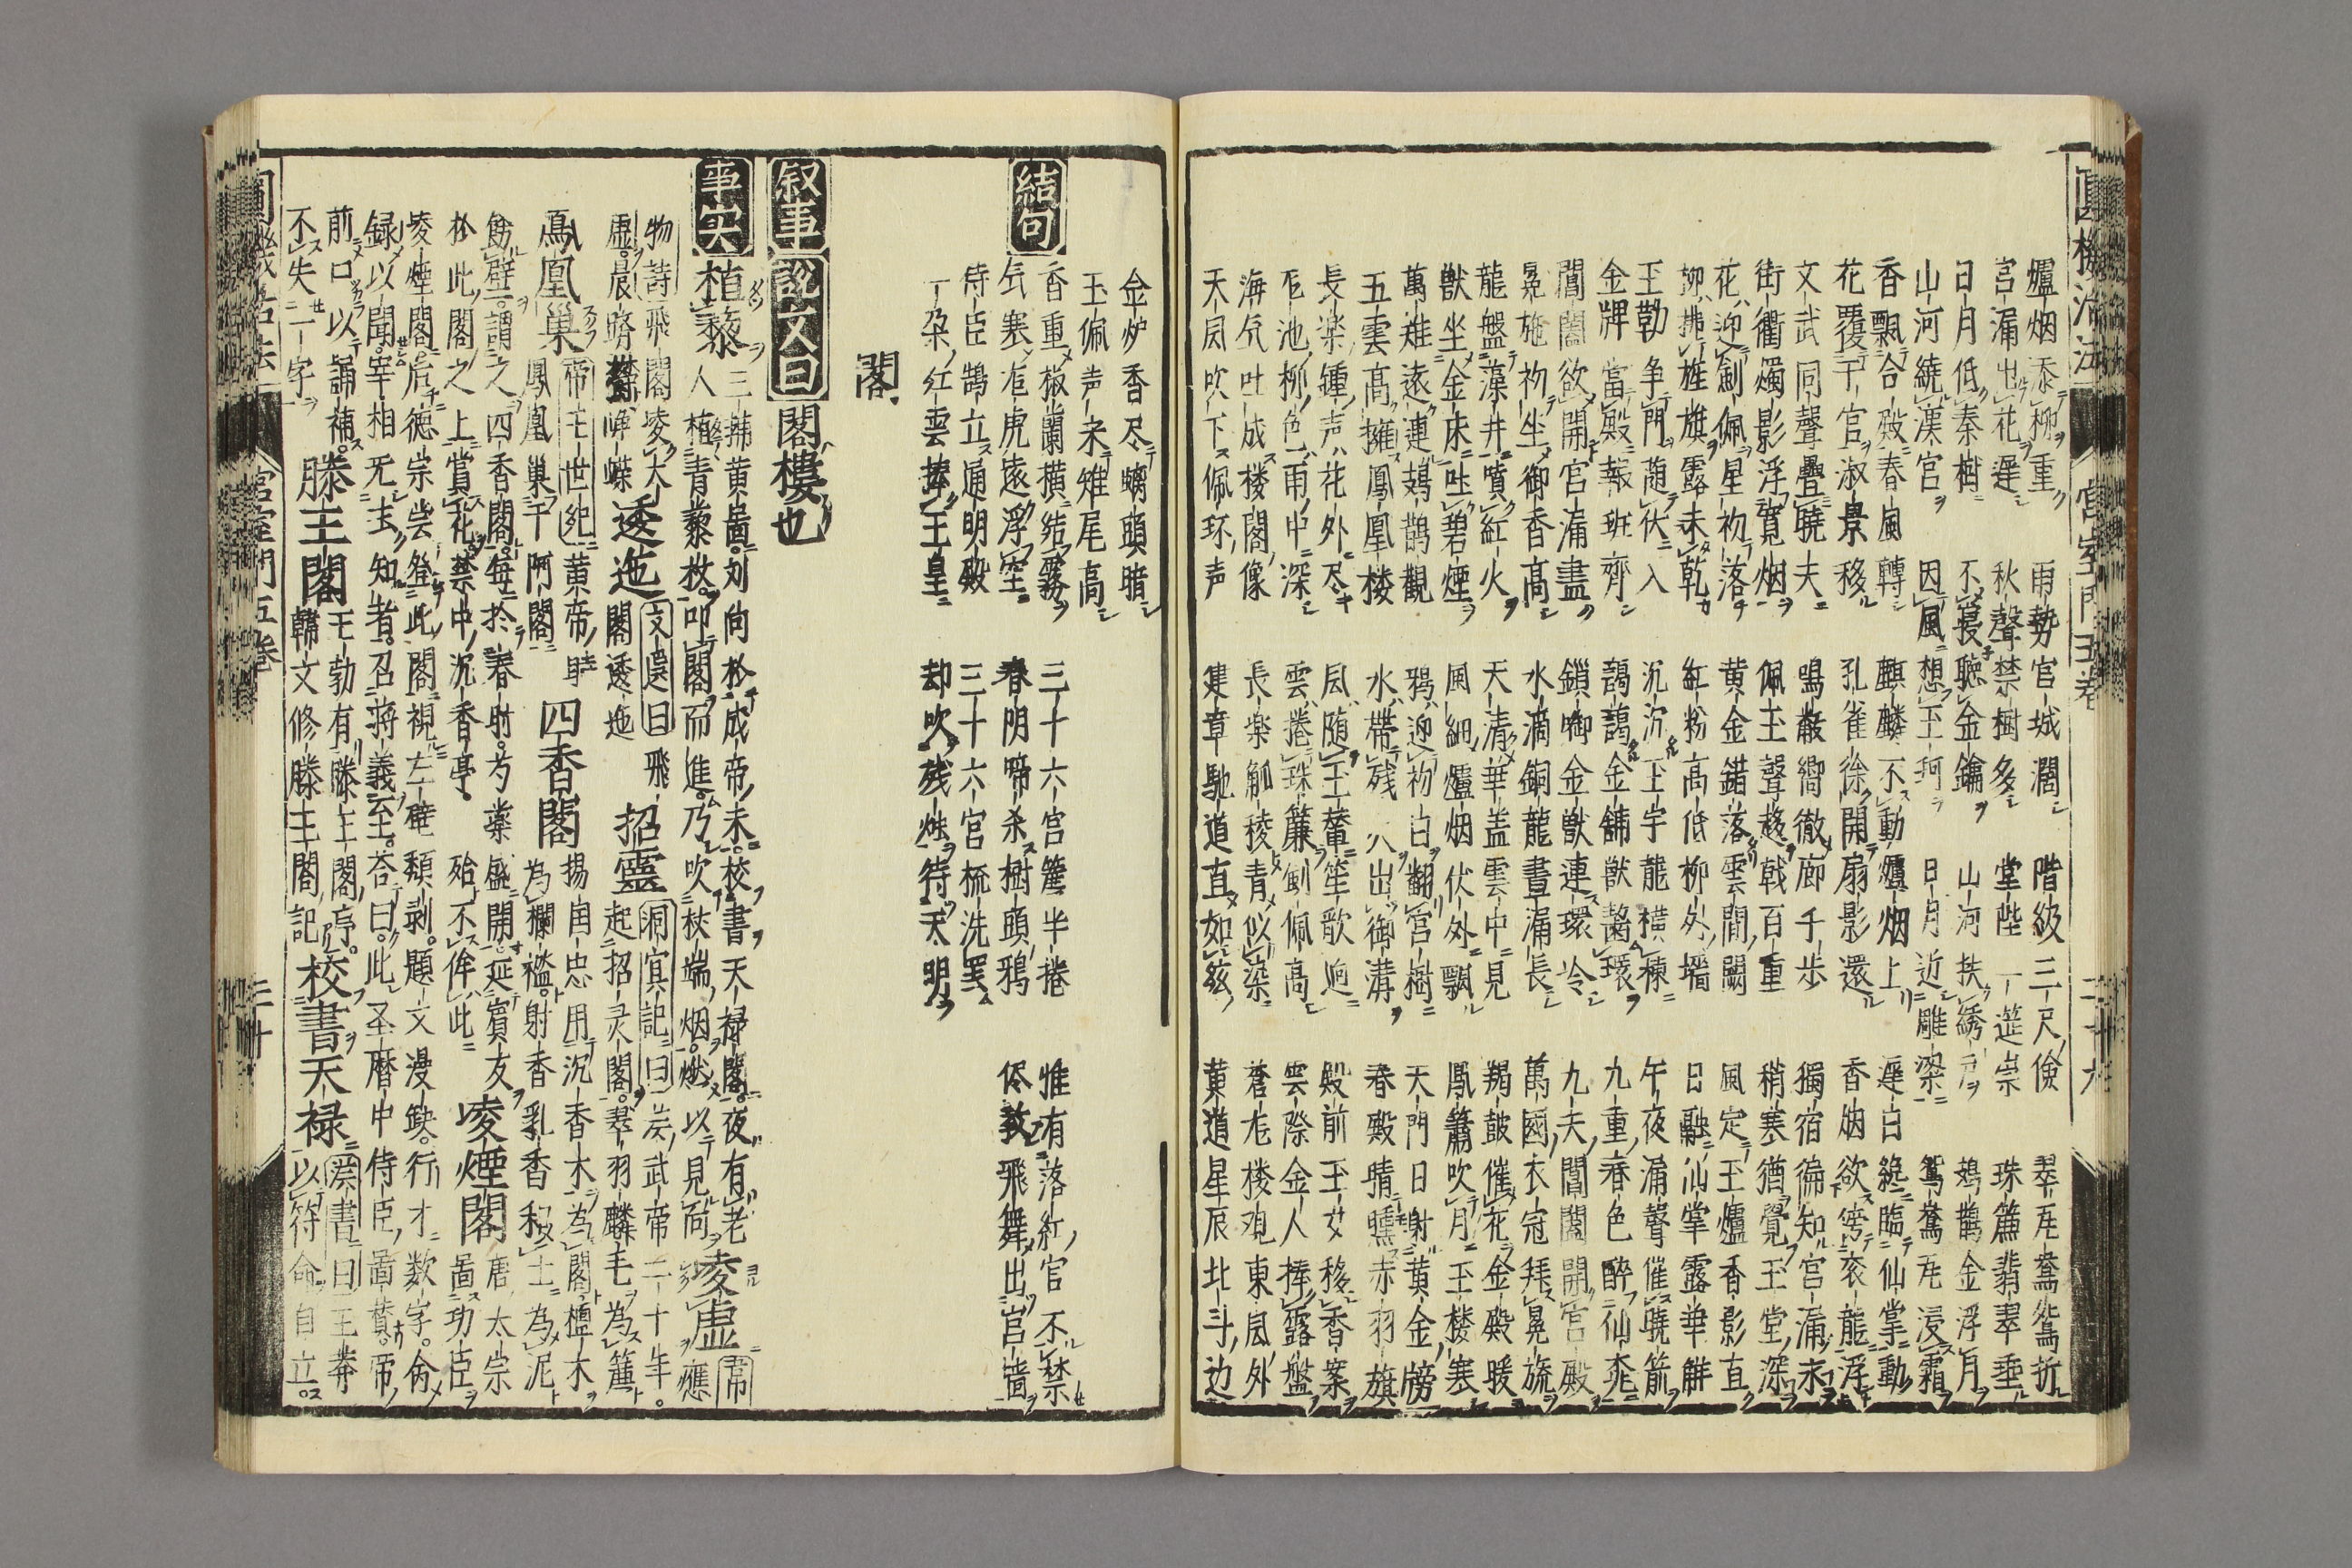 圓機活法 宮室門五卷 二十九
爐烟添柳重 雨勢官城濶 階級三尺儉 翠瓦鴛鴦折
宮漏出花遲 秋聲禁樹多 堂陛一筵崇 珠簾翡翠垂
日月低秦樹 不寝聽金鑰 山河扶綉戶 鳷鵲金浮月
山河繞漢宮 因風想玉珂 日月近雕梁 鴛鴦瓦浸霜
香飄合殿春風轉 麒麟不動爐烟上 遲日纔臨仙掌動
花覆千官淑景移 孔雀徐開扇影還 香烟欲傍衮龍浮
文武同聲疊曉夫 鳴巌嚮徹廊千歩 獨宿徧知宮漏永
街衢燭影浮寛烟 佩玉聲趍戟百重 稍寒猶覺玉堂深
花迎劍佩星初落 黄金錯落雲間闕 風定玉爐香影直
柳拂旌旗露未乾 紅粉高低柳外墻 日融仙掌露華鮮
玉勒争門随伏入 沉沉玉宇龍横棟 午夜漏聲催曉箭
金牌當殿報班齊 靄靄金舖獸齧環 九重春色醉仙桃
閶闔欲開宮漏盡 鎖啣金獸連環冷 九天閶闔開宮殿
冕旒初坐御香高 水滴銅龍晝漏長 萬國衣冠拜冕旒
龍盤藻井噴紅火 天清華盖雲中見 羯鼓催花金殿暖
獸坐金床吐碧煙 風細爐烟伏外飄 鳳簫吹月玉楼寒
萬雉遠連鳷鵲觀 鴉迎初日翻宮樹 天門日射黄金牓
五雲高擁鳳凰楼 水帯残氷出御溝 春殿晴曛赤羽旗
長楽鍾声花外尽 風随玉輦笙歌迥 殿前玉女移香案
龍池柳色雨中深 雲捲珠簾劍佩高 雲際金人捧露盤
海気吐成楼閣像 長楽觚稜青似染 蒼龙楼観東風外
天风吹下佩环声 建章馳道直如絃 黄道星辰北斗边
金炉香尽螭頭暗
玉佩声来雉尾高
結句 香重椒蘭横結霧 三十六宮簾半捲 惟有落紅官不禁
気寒龙虎遠浮空 春阴啼杀樹頭鴉 侭教飛舞出宮墻
侍臣鵠立通明殿 三十六宮梳洗罢
一朶紅雲捧玉皇 却吹残烛待天明
閣
叙事 説文曰 閣樓也
事实 植藜 三輔黄啚刘向於成帝末校書天禄閣夜有老
人植青藜杖叩閣而進乃吹杖端烟燃以見向 凌虚 帝應
物詩飛閣凌太虚晨躋欝峥嵘 逶迤 文選曰飛閣逶迤 招靈 洞冥記曰
漢武帝二十年起招灵閣翠羽麟毛為簾
鳳凰巣 帝王世紀黄帝時鳳凰巣于阿閣 四香閣 揚国忠用沉香木為閣檀木為欄襤射香乳香和土為泥
餙壁謂之四香閣每於春时芍薬盛開延賓友
於此閣之上賞花禁中沉香亭殆不侔此 凌煙閣 唐太宗啚功臣
凌煙閣后德宗尝登此閣視左壁頽剥題文漫缺行才数字命
録以聞宰相无主知者召蒋義至荅曰此圣暦中侍臣啚賛帝
前口以誦補不失一字 滕王閣 王勃有滕王閣序韓文修滕王閣記 校書天禄 漢書曰王莽以符命自立
圓機活法 宮室門五卷 三十